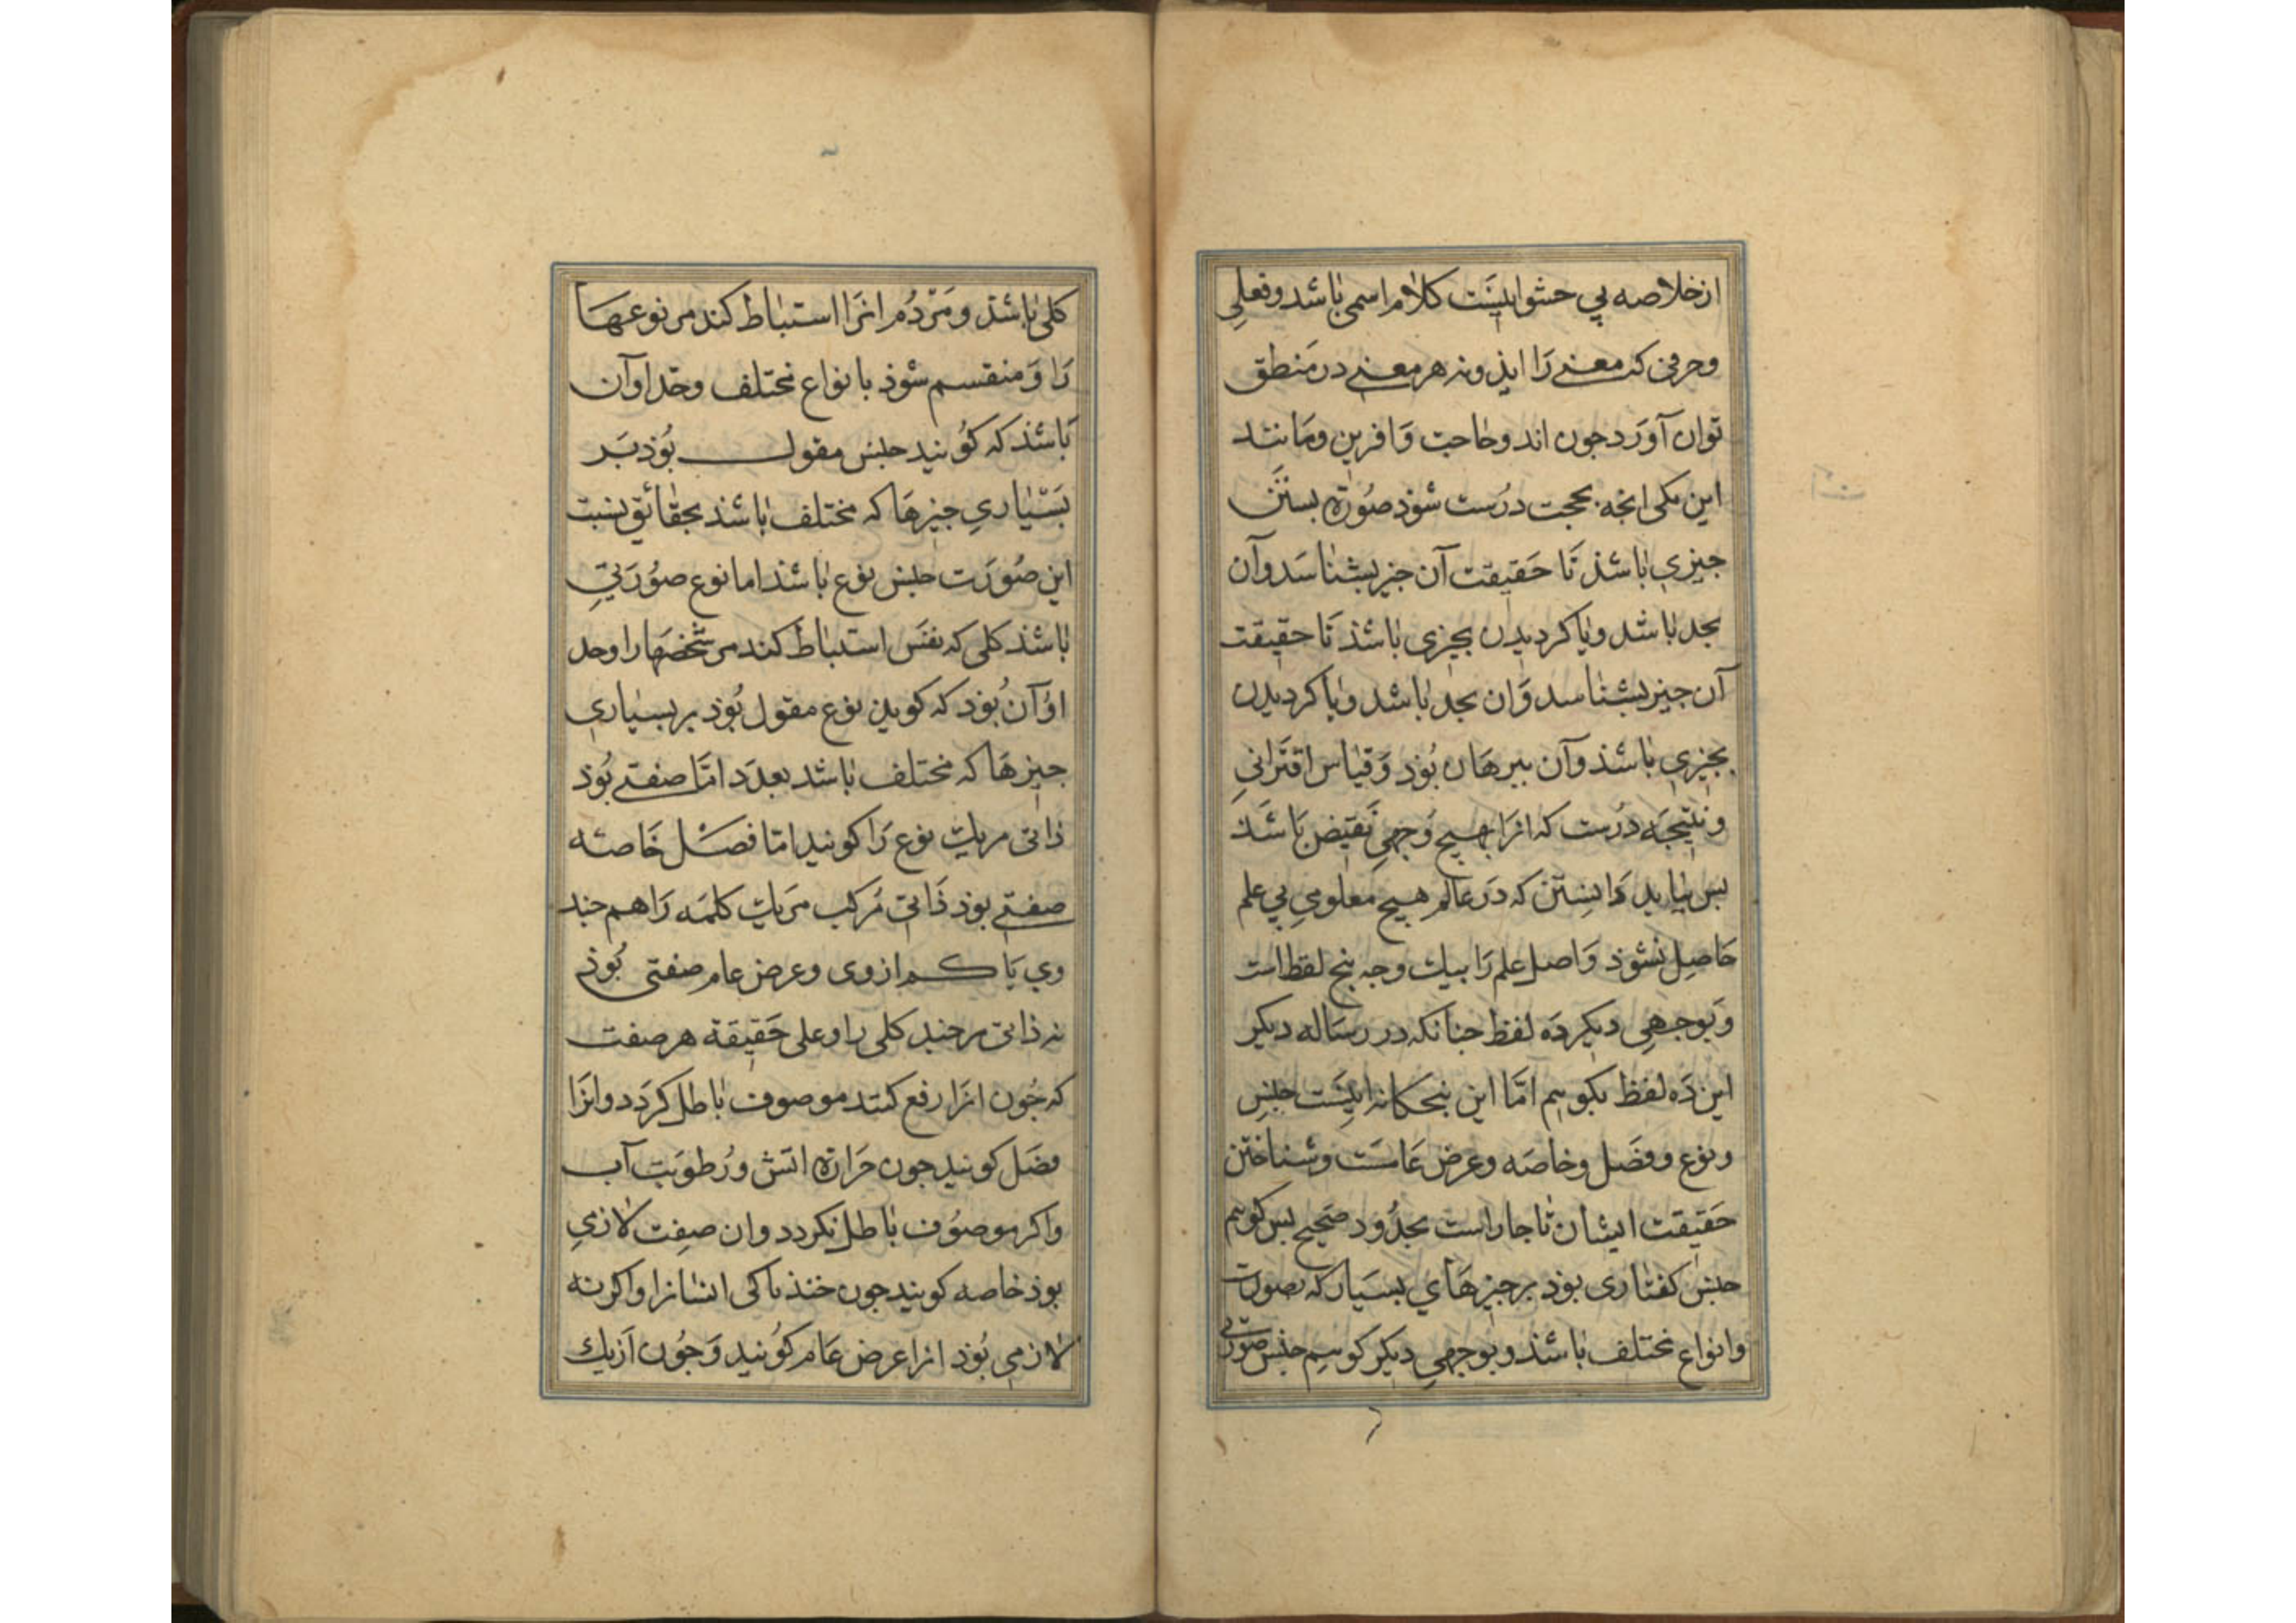 از خلاصه بی حشو اینَست کلام اسمی باشد و فعلی
وحرفی که معنے رَا ایذ ونه هر معنے در مَنطق
توان آورَد جون اند وحاجت وَافرین ومَانند
این یکی انجه بحجت درُست شوذ صُورَة بستَن
جیزی باشذ تَا حَقیقت آن جیز بشناسَد وآن
بحد باشد ویا کردیدن بجیزی باشذ تَا حقیقت
آن جیز بشناسد وَان بحد باشد ویا کردیدن
بجیزی باشذ وآن ببرهَان بُوذ وَقیاس اقتَرانیِ
ونتیجَه درُست که انرَا بهیج وَجهیِ نَقیض بَاشَذ
بس بباید دَانِستن که دَر عَالم هیج معلومیِ بی علم
حَاصِل نشوَذ وَاصل علم رَا بیك وجه بنج لفظ است
وَبوجهیِ دیکر دَه لفظ جنانکه در رسَاله دیکر
این دَه لفظ بکوییم امَّا این بنجکانه اینَست جنسِ
ونوع وفصَل وخاصَه وعرض عَامست وشناختن
حَقیقت ایشان ناجار است بحدُود صَحیح بس کوییم
جنس کفتاری بوذ بر جیز هَاي بسیَار که بصورت
وانواع مختلف باشذ وبوجهیِ دیکر کوییم جنس صورتی
کلی باشذ ومَردُم انرَا استنباط کند مر نوعهَا
رَا وَمنقسم شوذ بانواع مختلف وحَد او آن
بَاشذ که کوُیند جنس مقول بُوذ بَر
بَسْیاریِ جیزهَا که مختلف باشذ بحقائق بنسبت
این صُورَت جنس نوع باشذ اما نوع صوُرَتیِ
باشذ کلی که نفَس استنباط کند مر شخصَها را وحد
اوُ آن بُوذ که کویند نوع مقول بُوذ بر بسیاری
جیزهَا که مختلف باشد بعدَد امَّا صفتے بُوذ
ذاتی مر یك نوع رَا کویند امّا فصَل خَاصَه
صفتے بوذ ذَاتی مُرکب مَر یك کلمَه رَا هم جند
وی یَا کم از وی وعرض عام صفتی بُوذ
نه ذاتی مر جند کلی را وعلی حَقیقة هر صفت
که جُون انرَا رفع کنند موصوف باطل کردَد وانرَا
فصَل کویند جون حَرارة اتَش ورُطوبَت آب
واکر موصوُف باطل نکردد وان صِفت لازمیِ
بوذ خاصه کویند جون خنذناکی انسَانرا واکر نه
لازمی بُوذ انرا عرض عَام کوُیند وَجُون اَز یك